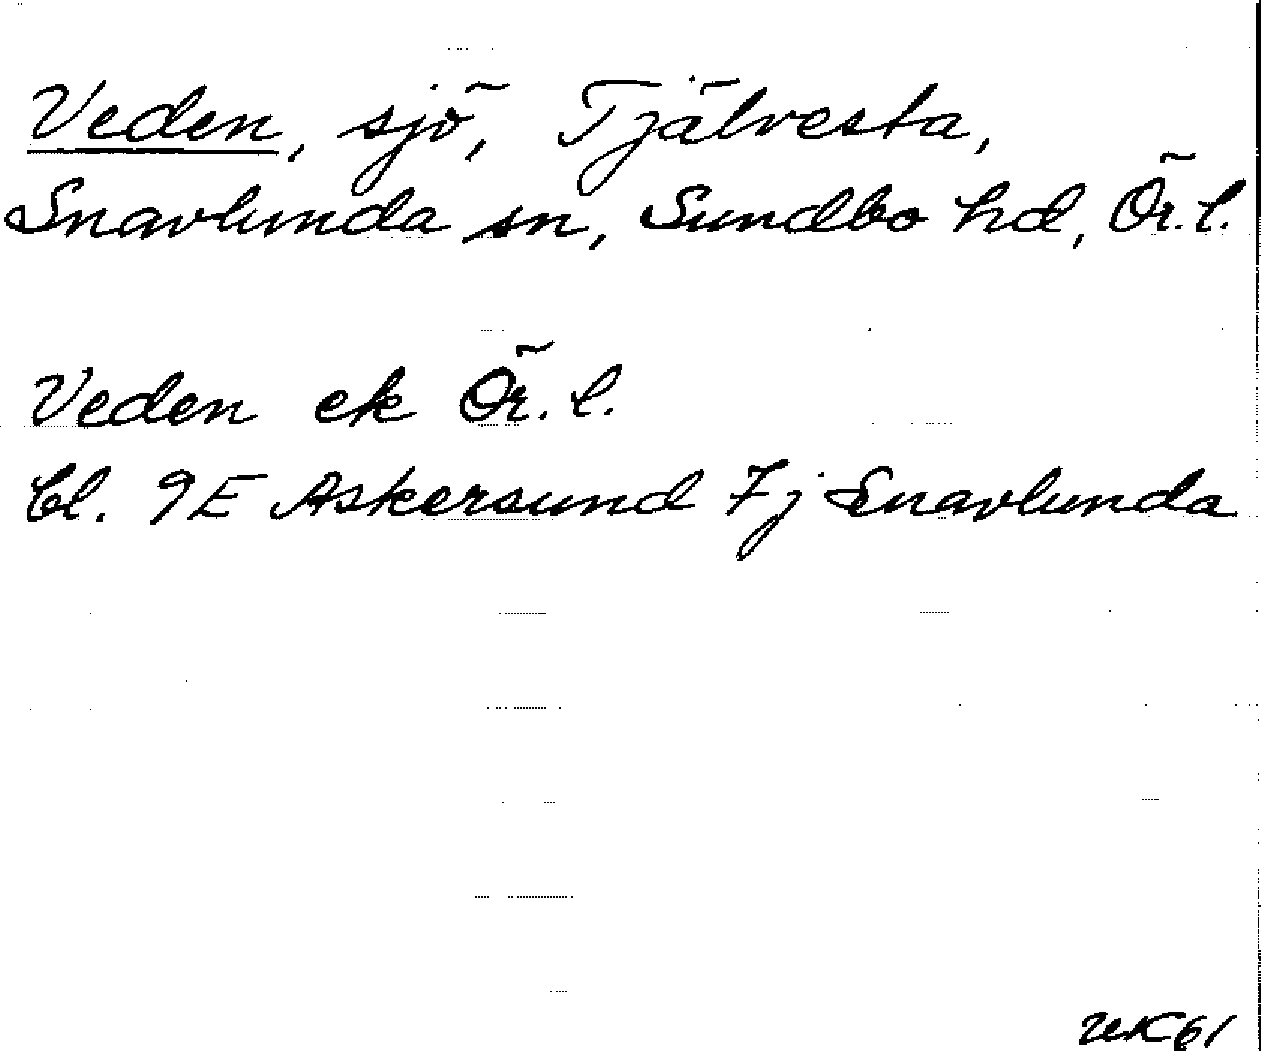 Veden, sjö, Tjälvesta,
Snavlunda sn, Sundbo hd, Ör. l.
Veden ek Ör. l.
bl. 9E Askersund 7j Snavlunda